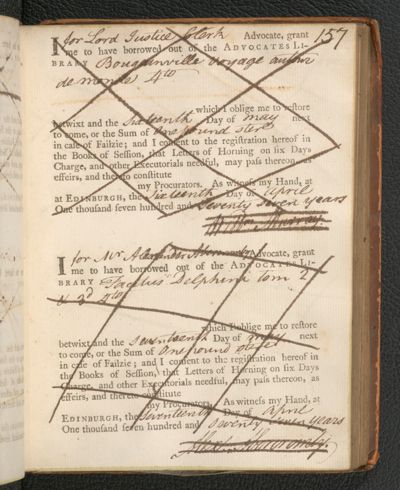 157
I for Lord Justice Clerk Advocate, grant
me to have borrowed out of the ADVOCATES LI-
BRARY Bougainville voyage autour
de monde 4to
which I oblige me to restore
betwixt and the Sixteenth Day of may next
to come, or the Sum of One pound ster
in case of Failzie; and I consent to the registration hereof in
the Books of Session, that Letters of Horning on six Days
Charge, and other Executorials needful, may pass thereon, as
effeirs, and thereto constitute
my Procurators. As witness my Hand, at
at EDINBURGH, the Sixteenth Day of April
One thousand seven hundred and Seventy Seven years
Murray
I for Mr Alexander Abercromby Advocate, grant
me to have borrowed out of the ADVOCATES LI-
BRARY Tacitus Delphini tom 2
& 3d 4to
which I oblige me to restore
betwixt and the Seventeenth Day of may next
to come, or the Sum of One pound ster
in case of Failzie; and I consent to the registration hereof in
the Books of Session, that Letters of Horning on six Days
Charge, and other Executorials needful, may pass thereon, as
effeirs, and thereto constitute
my Procurators. As witness my Hand, at
EDINBURGH, the Seventeenth Day of April
One thousand seven hundred and Seventy Seven years